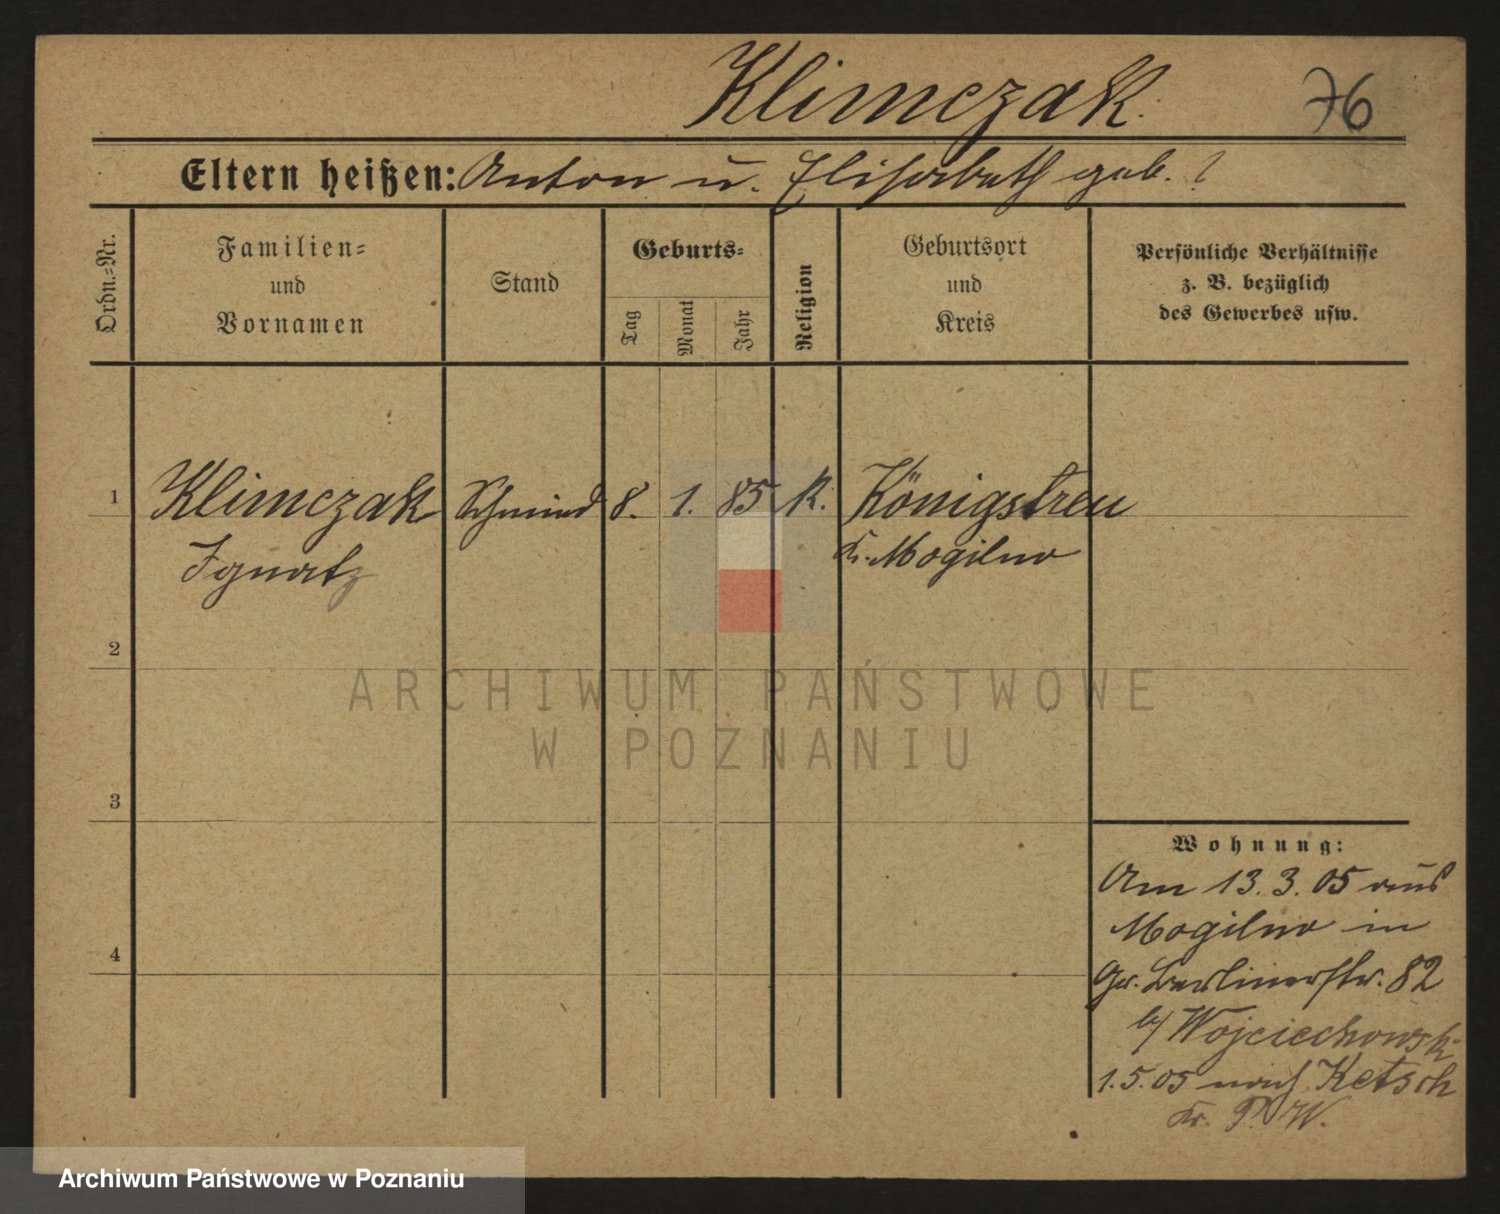 Klimczak
76
Eltern heißen: Anton u. Elisabeth geb. ?
Ordn.-Nr.
Familien-
und
Vornamen
Stand
Geburts-
Tag
Monat
Jahr
Religion
Geburtsort
und
Kreis
Persönliche Verhältnisse
z. B. bezüglich
des Gewerbes usw.
1 Klimczak Schmied 8. 1. 85 K. Königstreu
Ignatz Kr. Mogilno
2
ARCHIWUM PAŃSTWOWE
W POZNANIU
3
Wohnung:
Am 13.3.05 aus
Mogilno in
4
Gr. Berlinerstr. 82
b/ Wojciechowski
1.5.05 nach Ketsch
Kr. P. W.
Archiwum Państwowe w Poznaniu